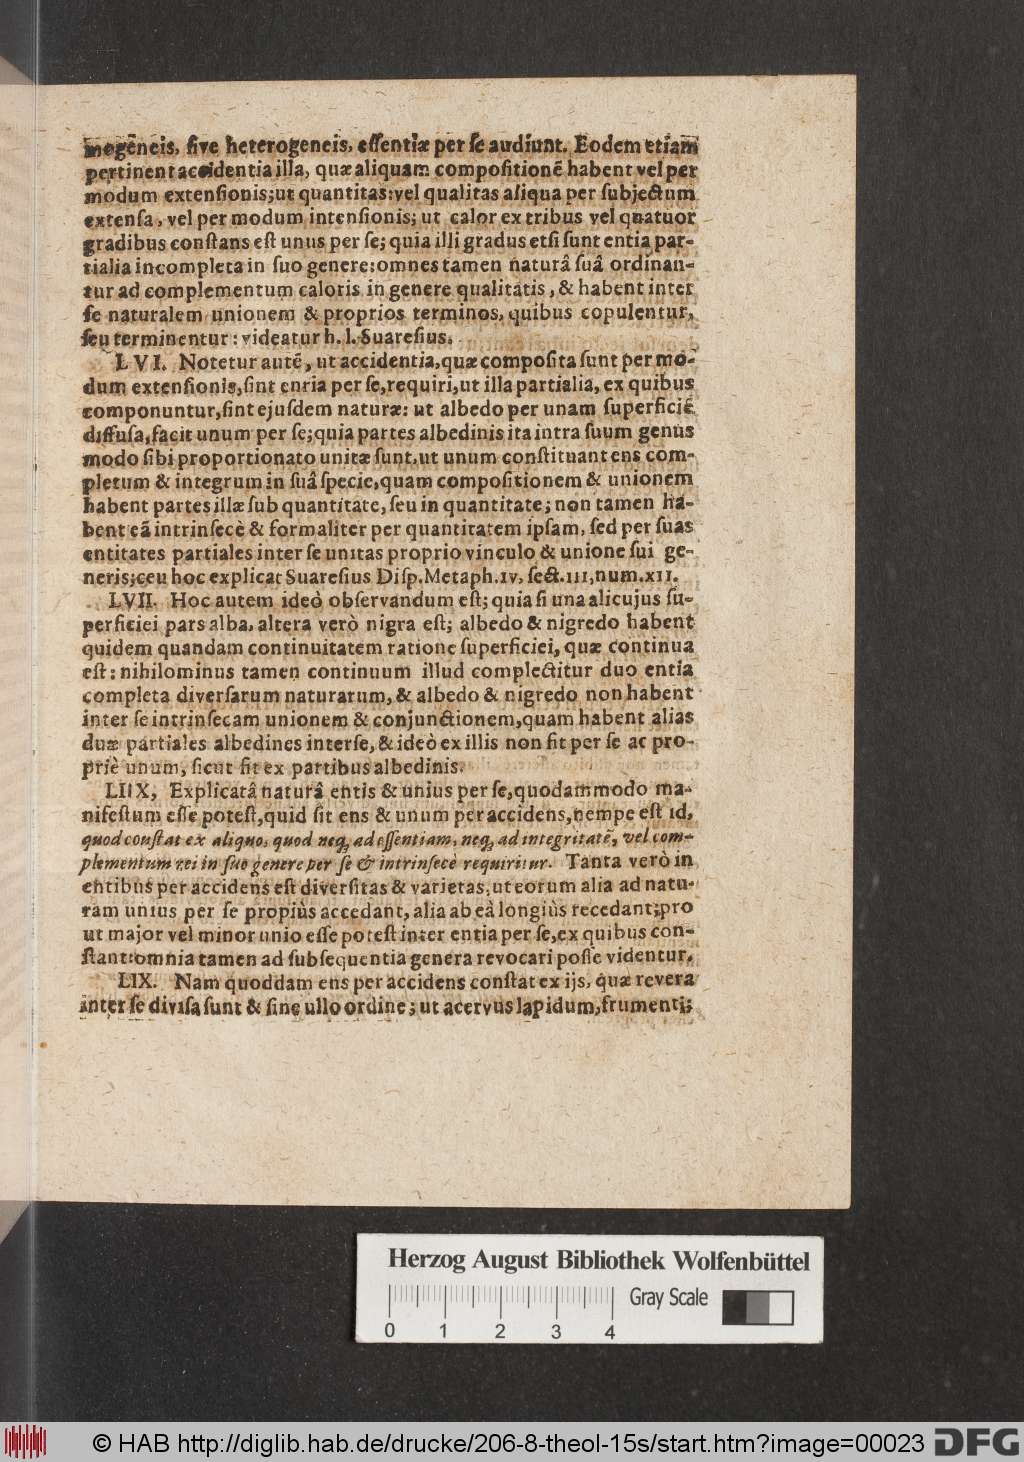 mogēneis, ſive heterogeneis, eſſentiæ per ſe audiunt. Eodem etiam
pertinent accidentia illa, quæ aliquam compoſitionē habent vel per
modum extenſionis; ut quantitas: vel qualitas aliqua per ſubjectum
extenſa, vel per modum intenſionis; ut calor ex tribus vel quatuor
gradibus conſtans eſt unus per ſe; quia illi gradus etſi ſunt entia par-
tialia incompleta in ſuo genere: omnes tamen naturâ ſuâ ordinan-
tur ad complementum caloris in genere qualitatis, & habent inter
ſe naturalem unionem & proprios terminos, quibus copulentur,
ſeu terminentur: videatur h. l. Suareſius.
LVI. Notetur autē, ut accidentia, quæ compoſita ſunt per mo-
dum extenſionis, ſint entia per ſe, requiri, ut illa partialia, ex quibus
componuntur, ſint ejuſdem naturæ: ut albedo per unam ſuperficiē
diffuſa, facit unum per ſe; quia partes albedinis ita intra ſuum genus
modo ſibi proportionato unitæ ſunt, ut unum conſtituant ens com-
pletum & integrum in ſuâ ſpecie, quam compoſitionem & unionem
habent partes illæ ſub quantitate, ſeu in quantitate; non tamen ha-
bent eā intrinſecè & formaliter per quantitatem ipſam, ſed per ſuas
entitates partiales inter ſe unitas proprio vinculo & unione ſui ge-
neris; ceu hoc explicat Suareſius Diſp. Metaph. IV, ſect. III, num. XII.
LVII. Hoc autem ideò obſervandum eſt; quia ſi una alicujus ſu-
perficiei pars alba, altera verò nigra eſt; albedo & nigredo habent
quidem quandam continuitatem ratione ſuperficiei, quæ continua
eſt: nihilominus tamen continuum illud complectitur duo entia
completa diverſarum naturarum, & albedo & nigredo non habent
inter ſe intrinſecam unionem & conjunctionem, quam habent alias
duæ partiales albedines interſe, & ideò ex illis non fit per ſe ac pro-
priè unum, ſicut fit ex partibus albedinis.
LIIX, Explicatâ naturâ entis & unius per ſe, quodammodo ma-
nifeſtum eſſe poteſt, quid ſit ens & unum per accidens, nempe eſt id,
quod conſtat ex aliquo, quod neq; ad eſſentiam, neq; ad integritatē, vel com-
plementum rei in ſuo genere per ſe & intrinſecè requiritur. Tanta verò in
entibus per accidens eſt diverſitas & varietas, ut eorum alia ad natu-
ram unius per ſe propiùs accedant, alia ab eâ longiùs recedant; pro
ut major vel minor unio eſſe poteſt inter entia per ſe, ex quibus con-
ſtant: omnia tamen ad ſubſequentia genera revocari poſſe videntur.
LIX. Nam quoddam ens per accidens conſtat ex ijs, quæ revera
inter ſe diviſa ſunt & ſine ullo ordine; ut acervus lapidum, frumenti;
Herzog August Bibliothek Wolfenbüttel
Gray Scale
0 1 2 3 4
© HAB http://diglib.hab.de/drucke/206-8-theol-15s/start.htm?image=00023
DFG